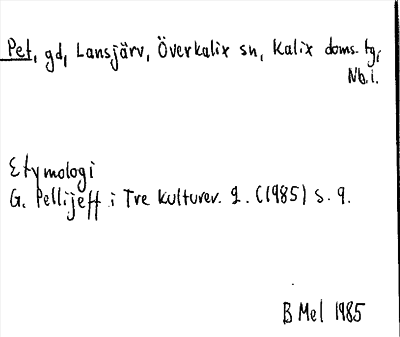 Pet, gd, Lansjärv, Överkalix sn, Kalix doms. tg,
Nb.l.
Etymologi
G. Pellijeff i Tre kulturer. 2. (1985) s. 9.
B Mel 1985